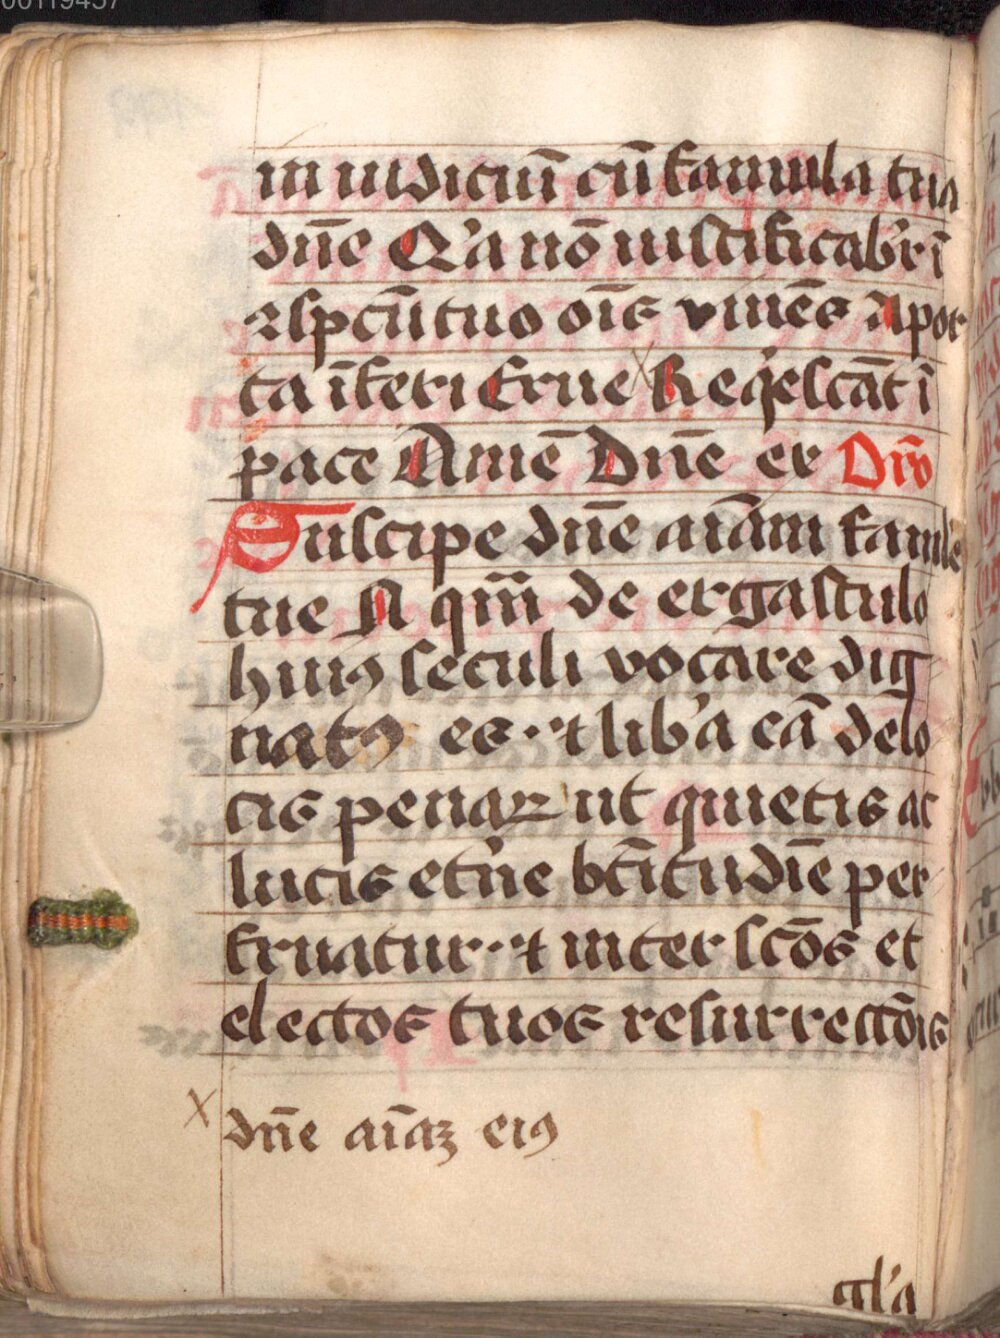 00119457
in iudiciū cū famula tua
dn̄e Q'a nō iustificab'r ī
ꝯspcū tuo oīs viuēs A por
ta īferi Erue Req'escāt ī
pace Amē Dn̄e ex Oro
Suscipe dn̄e aīam famul'e
tue N qm̄ de ergastulo
huiꝯ seculi vocare dig
natꝯ es · ⁊ lib'a eā de lo
cis penaꝝ ut quietis ac
lucis et'ne bt̄itudīe per
fruatur · ⁊ inter sc̄os et
electos tuos resurrectōis
x dn̄e aīaꝫ eiꝯ
gl'a